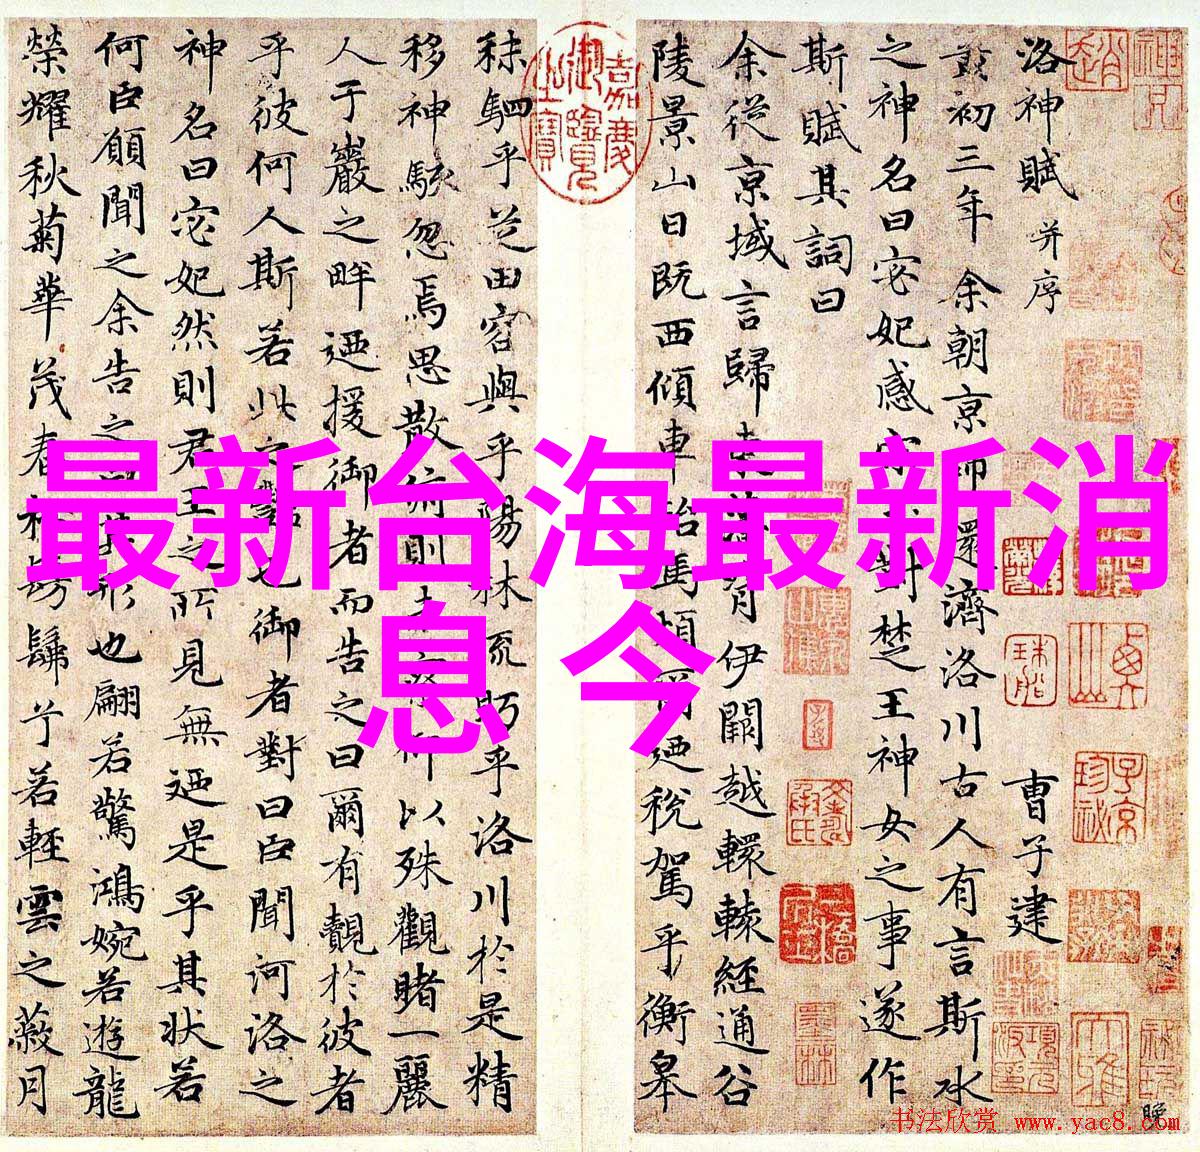 最新台海最新消
息今
洛神賦 并序 曹子建
黃初三年余朝京師還濟洛川古人有言斯水
之神名曰宓妃感宋玉對楚王神女之事遂作
斯賦其詞曰
余從京域言歸東藩背伊闕越轘轅經通谷
陵景山日既西傾車殆馬煩爾迺稅駕乎衡皋
秣駟乎芝田容與乎陽林流眄乎洛川於是精
移神駭忽焉思散俯則未察仰以殊觀睹一麗
人于巖之畔迺援御者而告之曰爾有覿於彼者
乎彼何人斯若此之豔也御者對曰臣聞河洛之
神名曰宓妃然則君王之所見無迺是乎其狀若
何臣願聞之余告之曰其形也翩若驚鴻婉若遊龍
榮耀秋菊華茂春松髣髴兮若輕雲之蔽月
嘉慶御覽之寶
书法欣赏 www.yac8.com